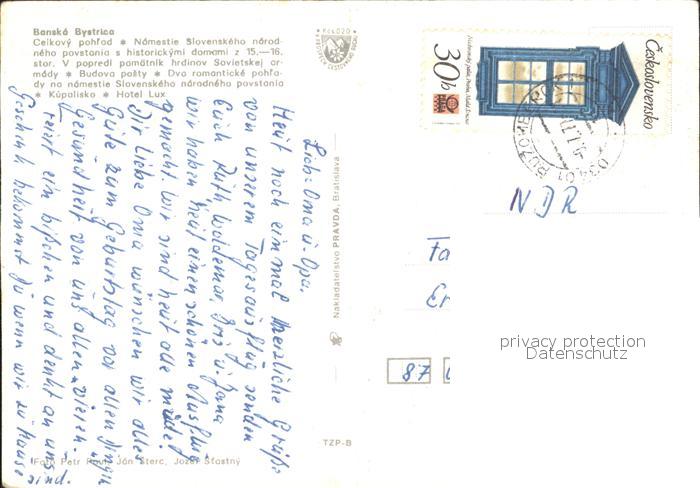 Banská Bystrica
Celkový pohľad ✷ Námestie Slovenského národ-
ného povstania s historickými domami z 15.—16.
stor. V popredí pamätník hrdinov Sovietskej ar-
mády ✷ Budova pošty ✷ Dva romantické pohľa-
dy na námestie Slovenského národného povstania
✷ Kúpalisko ✷ Hotel Lux
Lieb. Oma u. Opa.
Heut noch einmal herzliche Grüße
von unserem Tagesausflug senden
Euch Ruth, Woldemar, u. Jana
wir haben heut einen schönen Ausflug
gemacht. Wir sind heut alle müde!
Dir liebe Oma wünschen wir alles
Gute zum Geburtstag vor allen Dingen
Gesundheit von uns allen vieren.
Feiert ein bißchen und denkt an uns.
Geschenk bekommst Du wenn wir zu Hause
sind.
Foto Petr Paul, Ján Šterc, Jozef Šťastný
Nakladateľstvo PRAVDA, Bratislava
TZP-B
Československo
30h
034 01 RUŽOMBEROK
NDR
Fa
Er
87
privacy protection
Datenschutz